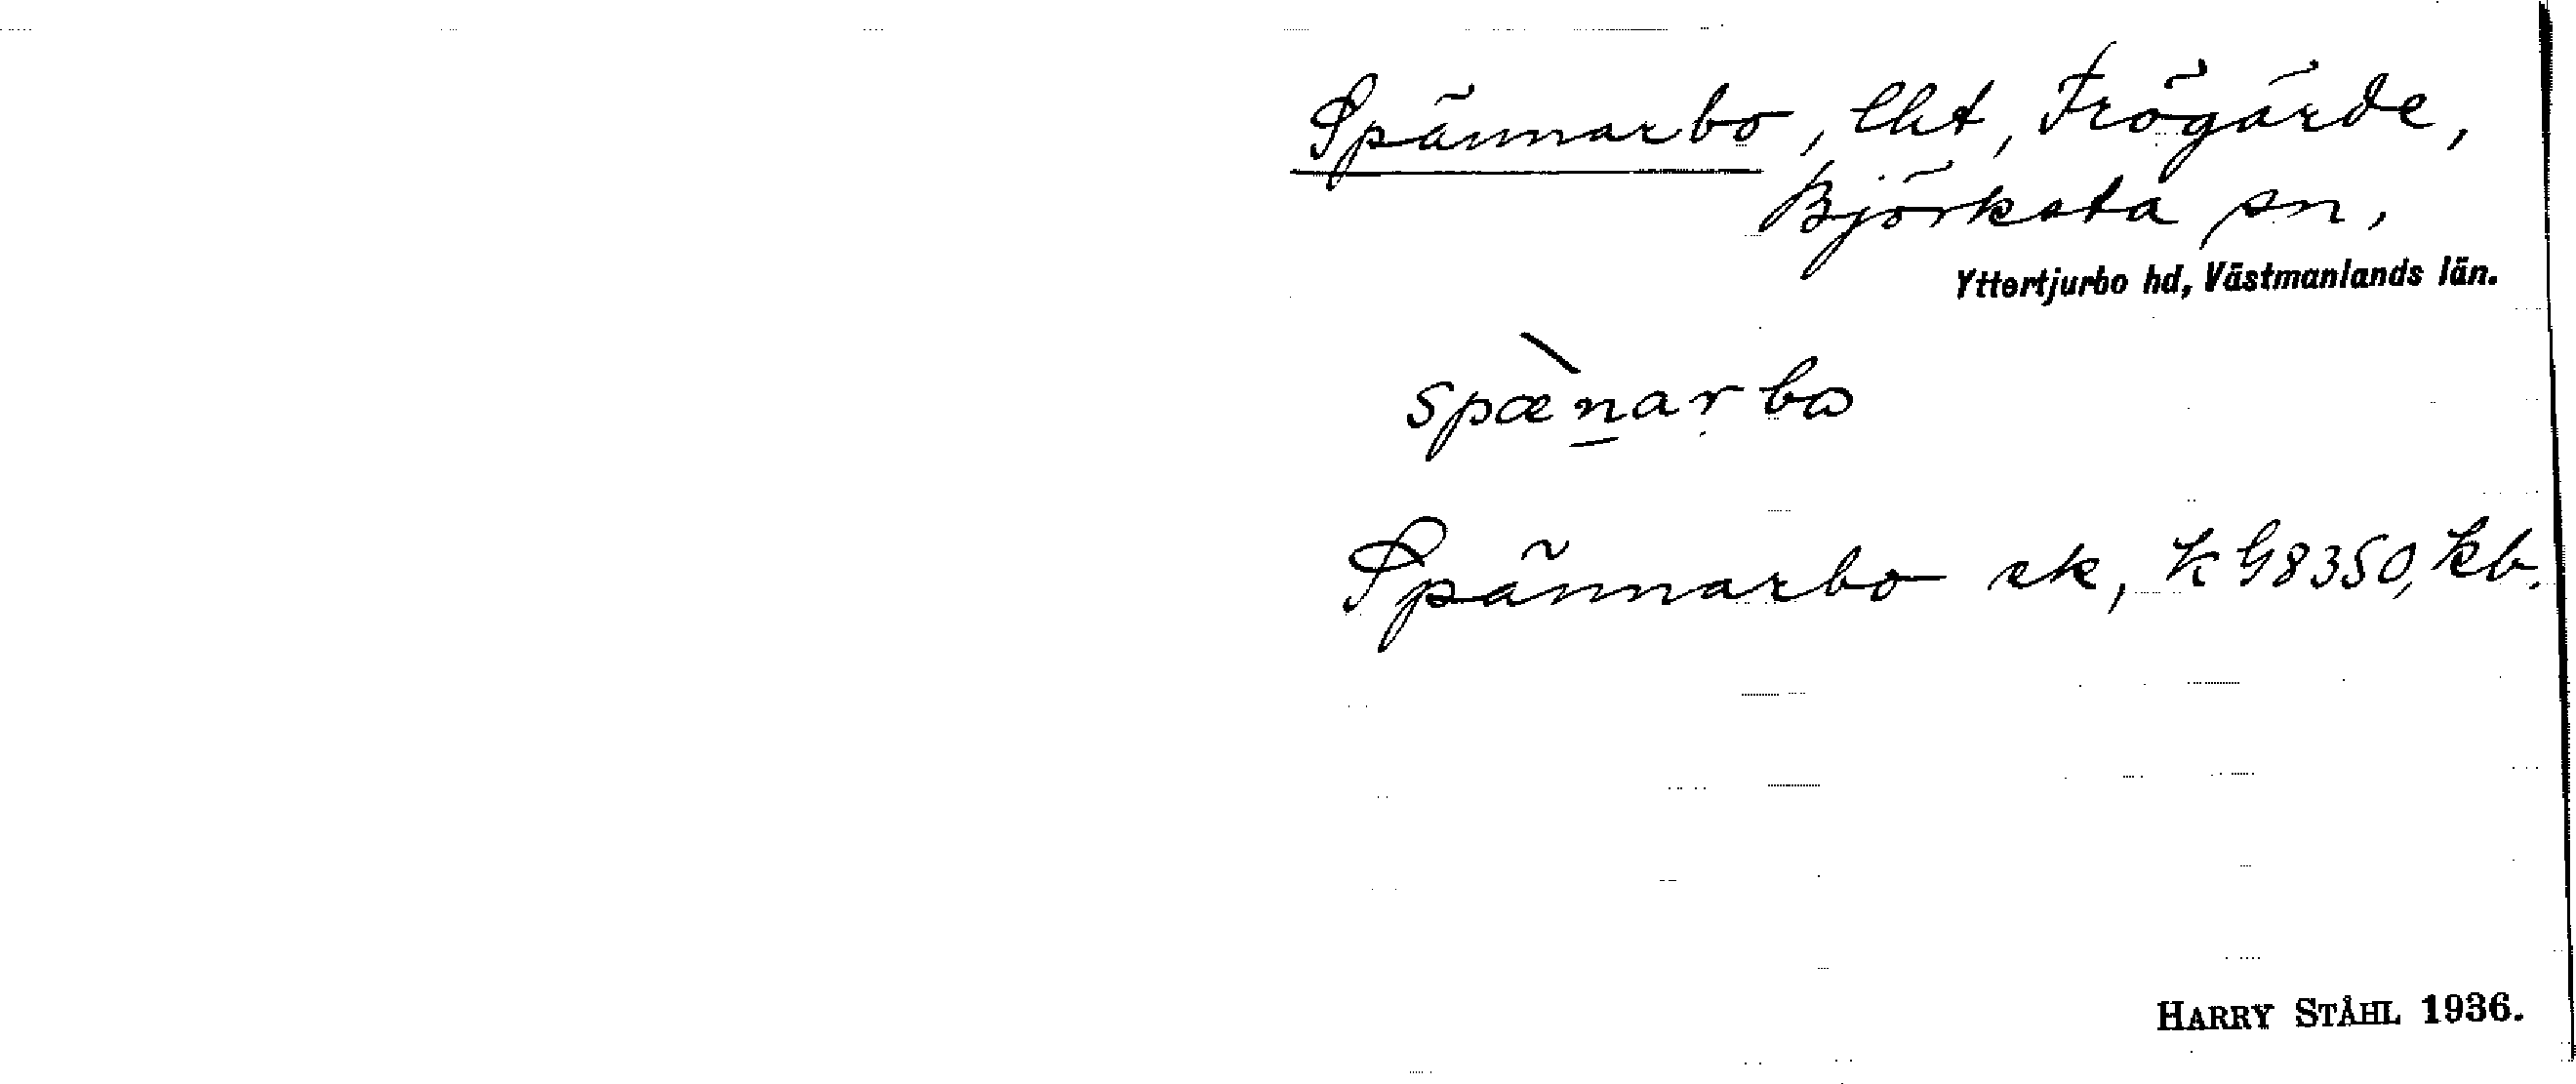 Spännarbo, lht, Frögärde,
Björksta sn,
Yttertjurbo hd, Västmanlands län.
spænarbo
Spännarbo ek, K G8350, kb.
HARRY STÅHL 1936.